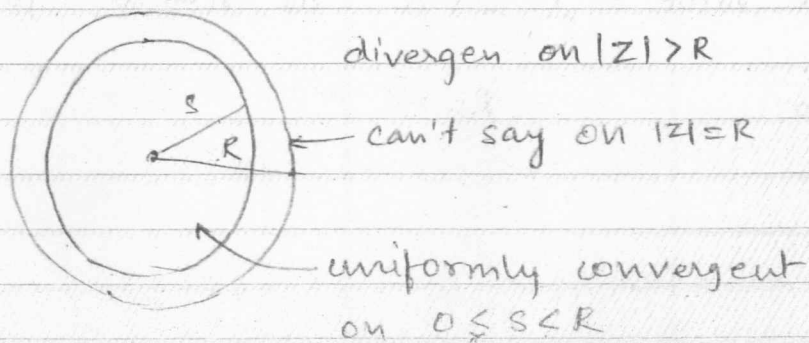 divergen on |z| > R
s
can't say on |z| = R
R
uniformly convergent
on 0 ≤ s < R